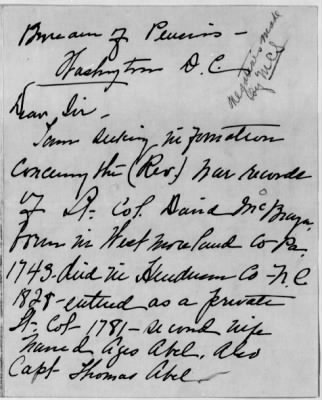 Bureau of Pensions -
Washington D.C.
negatives made
by MCS
Dear Sir -
I am seeking information
concerning the (Rev.) War records
of Lt. Col. David McBraya.
born in Westmoreland Co Pa.
1743 - died in Henderson Co N.C
1828 - entered as a private
Lt. Col 1781 - second wife
named Ages Abel. Also
Capt Thomas Abel -